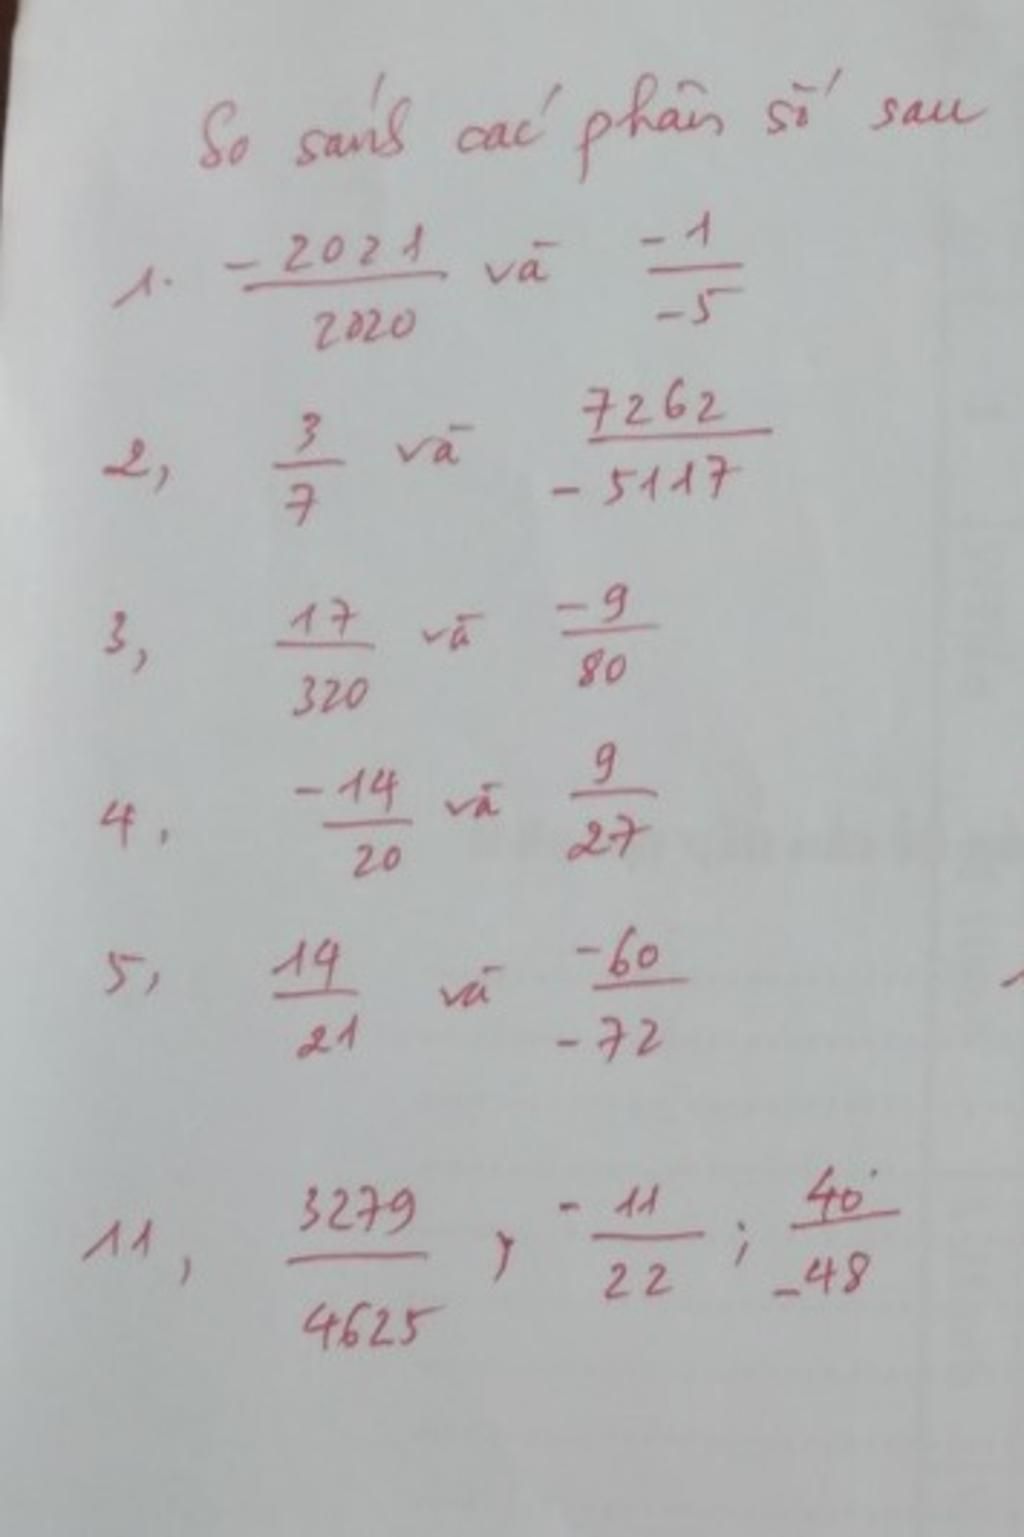 So sánh các phân số sau
1. -2021/2020 và -1/-5
2, 3/7 và 7262/-5117
3, 17/320 và -9/80
4. -14/20 và 9/27
5, 14/21 và -60/-72
11, 3279/4625 ; -11/22 ; 40/-48